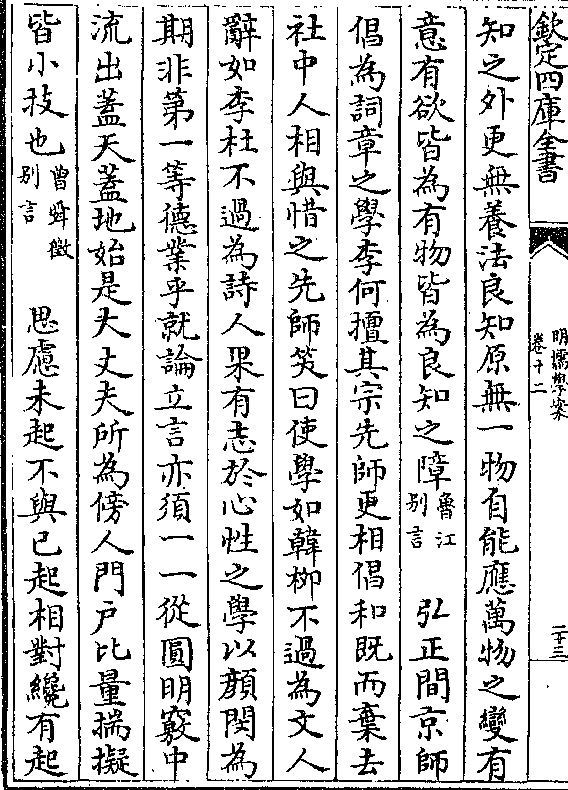 欽定四庫全書
明儒學案
卷十二
二十三
知之外更無養法良知原無一物自能應萬物之變有
意有欲皆為有物皆為良知之障魯江別言　弘正間京師
倡為詞章之學李何擅其宗先師更相倡和既而棄去
社中人相與惜之先師笑曰使學如韓柳不過為文人
辭如李杜不過為詩人果有志於心性之學以顔閔為
期非第一等德業乎就論立言亦須一一從圓明竅中
流出蓋天蓋地始是大丈夫所為傍人門戶比量揣擬
皆小技也曾舜徵別言　思慮未起不與已起相對纔有起